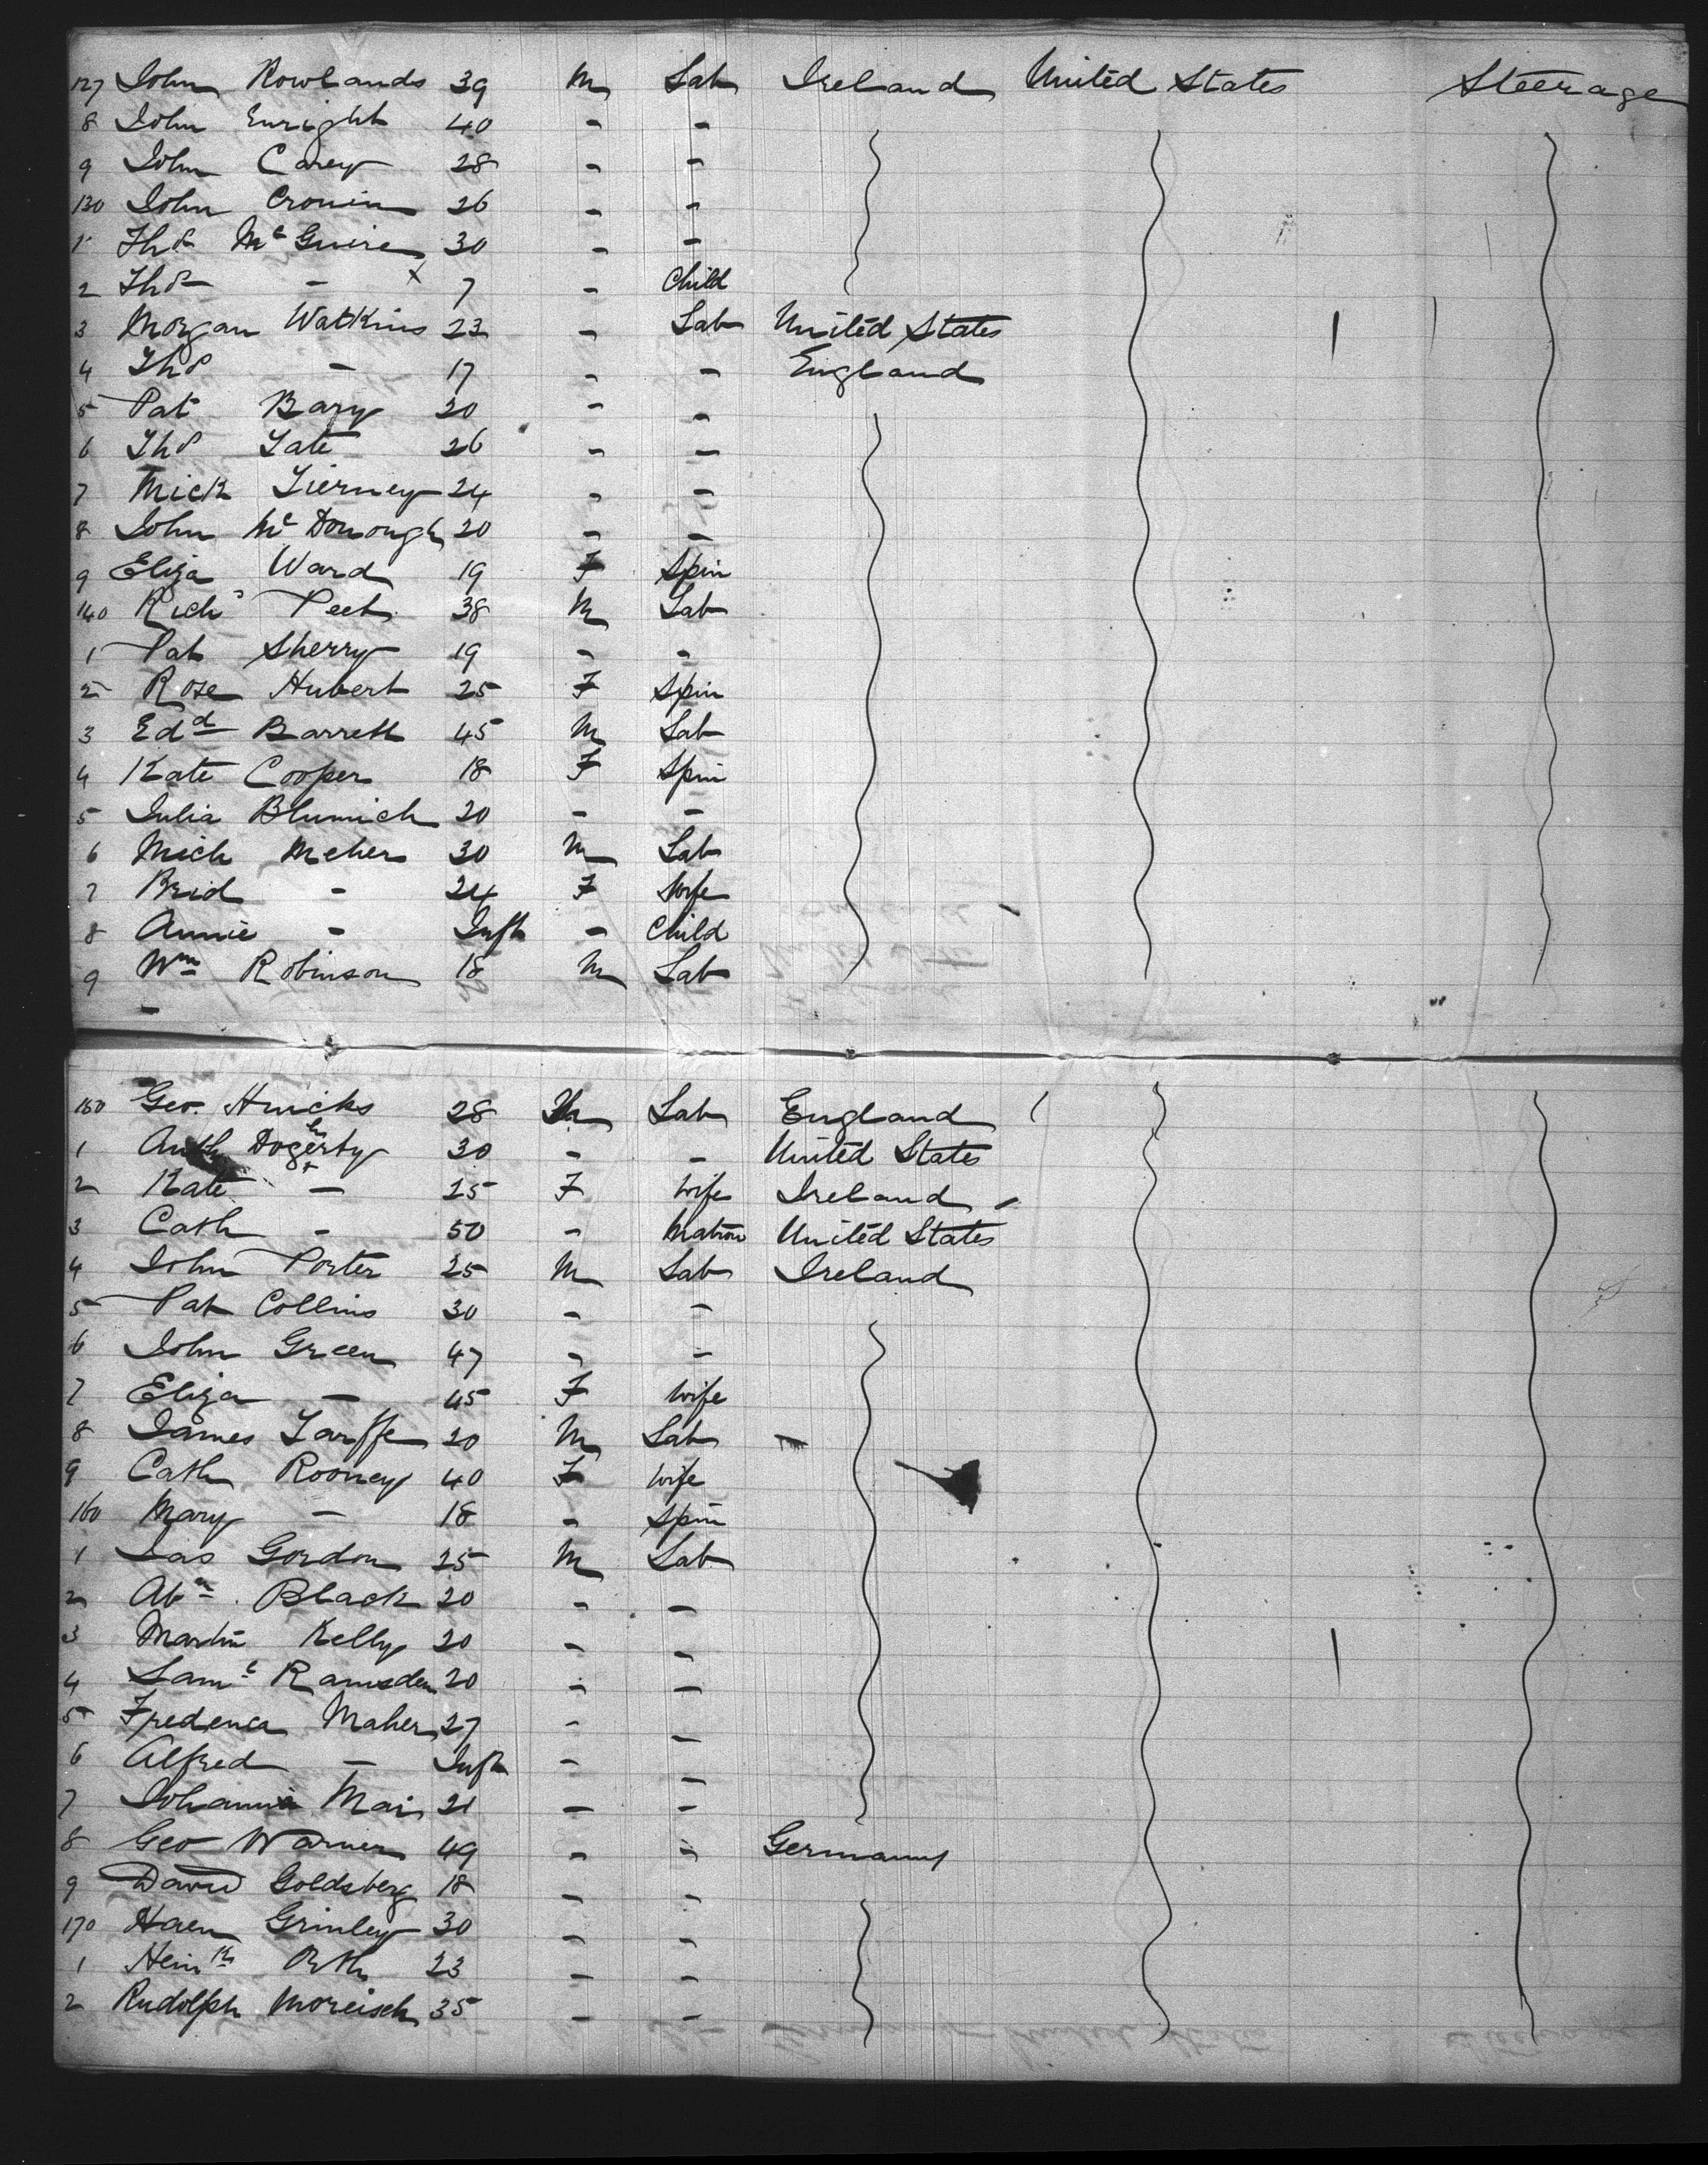 127 John Rowlands 39 M Lab Ireland United States Steerage
8 John Enright 40 - -
9 John Carey 28 - -
130 John Cronin 26 - -
1 Thos McGuire 30 - -
2 Thos - x 7 - Child
3 Morgan Watkins 23 - Lab United States
4 Thos - 17 - - England
5 Pat Bary 20 - -
6 Thos Tate 26 - -
7 Mick Tierney 24 - -
8 John McDonough 20 - -
9 Eliza Ward 19 F Spin
140 Richd Peet 38 M Lab
1 Pat Sherry 19 - -
2 Rose Hubert 25 F Spin
3 Edd Barrett 45 M Lab
4 Kate Cooper 18 F Spin
5 Julia Blumich 20 - -
6 Mich Meher 30 M Lab
7 Brid - 24 F Wife
8 Annie - Inft - Child
9 Wm Robinson 18 M Lab
-
150 Geo. Hincks 28 M Lab England
1 Anth Dogherty 30 - - United States
2 Kate - 25 F Wife Ireland
3 Cath - 50 - Matron United States
4 John Porter 25 M Lab Ireland
5 Pat Collins 30 - -
6 John Green 47 - -
7 Eliza - 45 F Wife
8 James Tarffe 20 M Lab
9 Cath Rooney 40 F Wife
160 Mary - 18 - Spin
1 Jas Gordon 25 M Lab
2 Abm Black 20 - -
3 Martin Kelly 20 - -
4 Saml Ramsden 20 - -
5 Frederica Maher 27 - -
6 Alfred - Inft - -
7 Johanna Mai 21 - -
8 Geo Warner 49 - - Germany
9 David Goldsberg 18 - -
170 Grinley 30 - -
1 Heinh 23 - -
2 Rudolph Moreisch 35 - -